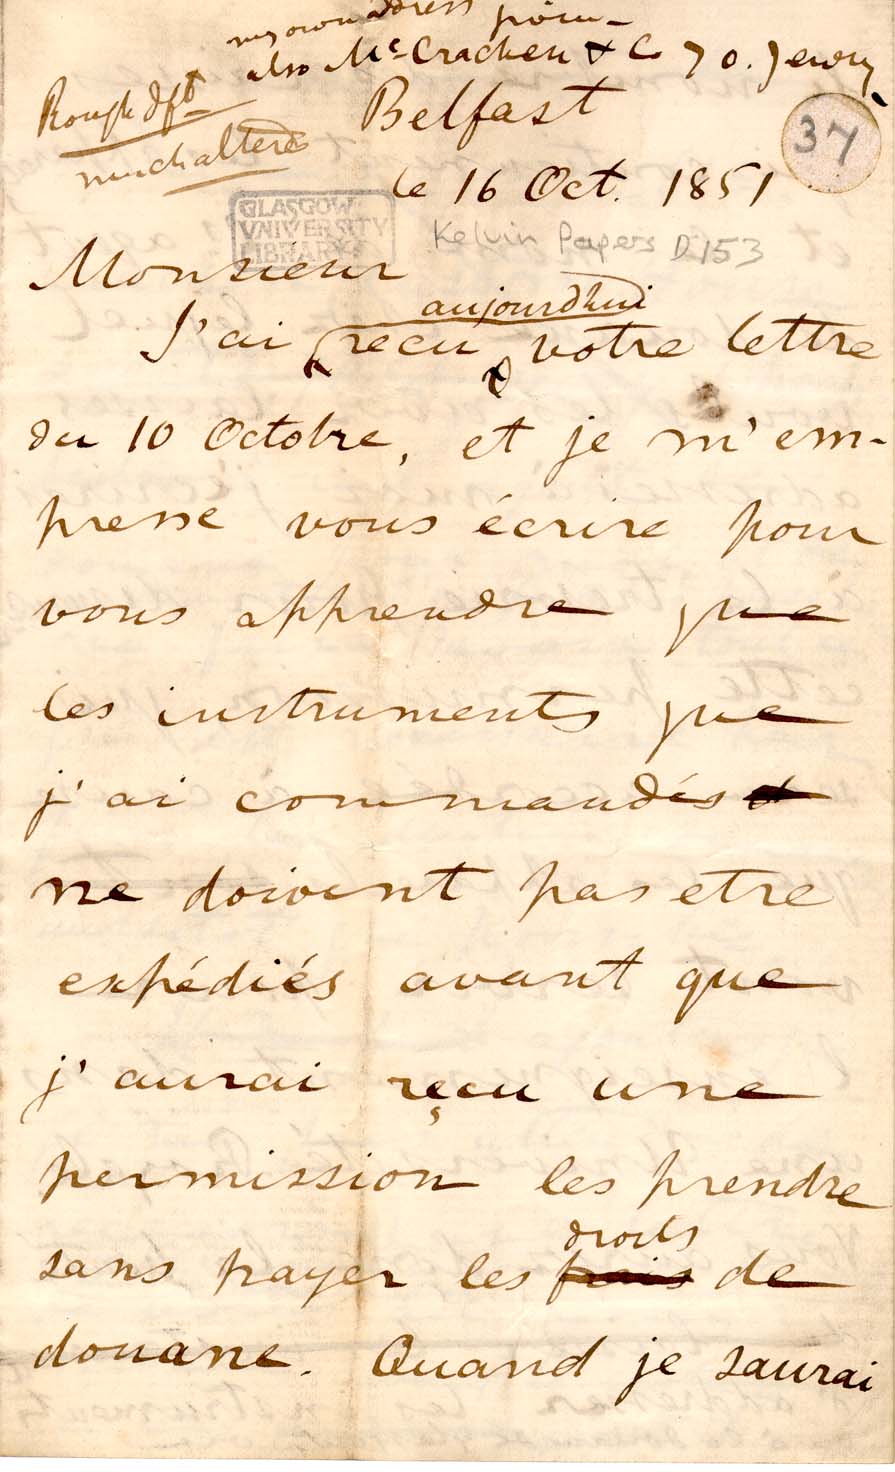 my own address
also McCracken & Co 7 O. Jewry
Rough dft
much altered
Belfast
37
le 16 Oct. 1851
GLASGOW
UNIVERSITY
LIBRARY
Kelvin Papers D 153
Monsieur
aujourdhui
J'ai recu votre lettre
du 10 Octobre, et je m'em-
presse vous écrire pour
vous apprendre que
les instruments que
j'ai commandés
ne doivent pas etre
expédiés avant que
j'aurai reçu une
permission les prendre
droits
sans payer les frais de
douane. Quand je saurai